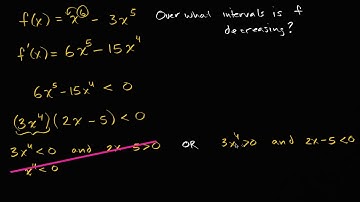 f(x) = x⁶ - 3x⁵ Over what intervals is f
decreasing?
f'(x) = 6x⁵ - 15x⁴
6x⁵ - 15x⁴ < 0
(3x⁴)(2x - 5) < 0
3x⁴ < 0 and 2x - 5 > 0 OR 3x⁴ > 0 and 2x - 5 < 0
x⁴ < 0